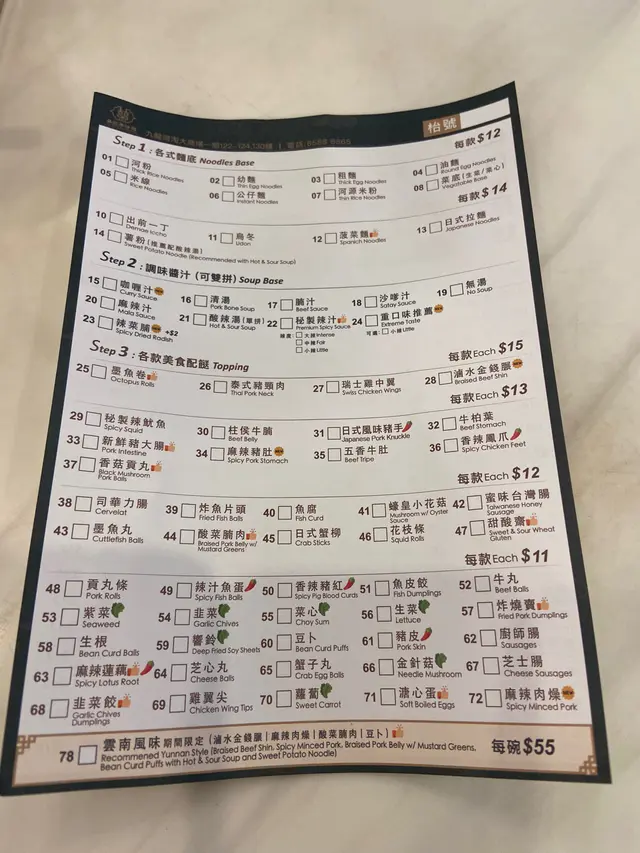 九龍灣淘大商場一期122-124,130舖 | 電話:
枱號
Step 1 : 各式麵底 Noodles Base 每款 $12
01 河粉 Thick Rice Noodles 02 幼麵 Thin Egg Noodles 03 粗麵 Thick Egg Noodles 04 油麵 Round Egg Noodles
05 米線 Rice Noodles 06 公仔麵 Instant Noodles 07 河源米粉 Thin Rice Noodles 08 菜底 (生菜/菜心) Vegetable Base
每款 $14
10 出前一丁 Demae Iccho 11 烏冬 Udon 12 菠菜麵 Spanich Noodles 13 日式拉麵 Japanese Noodles
14 薯粉 (推薦配酸辣湯) Sweet Potato Noodle (Recommended with Hot & Sour Soup)
Step 2 : 調味醬汁 (可雙拼) Soup Base
15 咖喱汁 Curry Sauce 16 清湯 Pork Bone Soup 17 腩汁 Beef Sauce 18 沙嗲汁 Satay Sauce 19 無湯 No Soup
20 麻辣汁 Mala Sauce 21 酸辣湯 (單拼) Hot & Sour Soup 22 秘製辣汁 Premium Spicy Sauce 24 重口味推薦 Extreme Taste
辣度: 大辣Intense 中辣Fair 小辣Little 可選: 小辣Little
23 辣菜脯 +$2 Spicy Dried Radish
Step 3 : 各款美食配餸 Topping 每款Each $15
25 墨魚卷 Octopus Rolls 26 泰式豬頸肉 Thai Pork Neck 27 瑞士雞中翼 Swiss Chicken Wings 28 滷水金錢𦟌 Braised Beef Shin
每款Each $13
29 秘製辣魷魚 Spicy Squid 30 柱侯牛腩 Beef Belly 31 日式風味豬手 Japanese Pork Knuckle 32 牛柏葉 Beef Stomach
33 新鮮豬大腸 Pork Intestine 34 麻辣豬肚 Spicy Pork Stomach 35 五香牛肚 Beef Tripe 36 香辣鳳爪 Spicy Chicken Feet
37 香菇貢丸 Black Mushroom Pork Balls
每款Each $12
38 司華力腸 Cervelat 39 炸魚片頭 Fried Fish Balls 40 魚腐 Fish Curd 41 蠔皇小花菇 Mushroom w/ Oyster Sauce 42 蜜味台灣腸 Taiwanese Honey Sausage
43 墨魚丸 Cuttlefish Balls 44 酸菜腩肉 Braised Pork Belly w/ Mustard Greens 45 日式蟹柳 Crab Sticks 46 花枝條 Squid Rolls 47 甜酸齋 Sweet & Sour Wheat Gluten
每款Each $11
48 貢丸條 Pork Rolls 49 辣汁魚蛋 Spicy Fish Balls 50 香辣豬紅 Spicy Pig Blood Curds 51 魚皮餃 Fish Dumplings 52 牛丸 Beef Balls
53 紫菜 Seaweed 54 韭菜 Garlic Chives 55 菜心 Choy Sum 56 生菜 Lettuce 57 炸燒賣 Fried Pork Dumplings
58 生根 Bean Curd Balls 59 響鈴 Deep Fried Soy Sheets 60 豆卜 Bean Curd Puffs 61 豬皮 Pork Skin 62 廚師腸 Sausages
63 麻辣蓮藕 Spicy Lotus Root 64 芝心丸 Cheese Balls 65 蟹子丸 Crab Egg Balls 66 金針菇 Needle Mushroom 67 芝士腸 Cheese Sausages
68 韭菜餃 Garlic Chives Dumplings 69 雞翼尖 Chicken Wing Tips 70 蘿蔔 Sweet Carrot 71 溏心蛋 Soft Boiled Eggs 72 麻辣肉燥 Spicy Minced Pork
78 雲南風味 期間限定 (滷水金錢𦟌 | 麻辣肉燥 | 酸菜腩肉 | 豆卜) 每碗 $55
Recommended Yunnan Style (Braised Beef Shin, Spicy Minced Pork, Braised Pork Belly w/ Mustard Greens,
Bean Curd Puffs with Hot & Sour Soup and Sweet Potato Noodle)